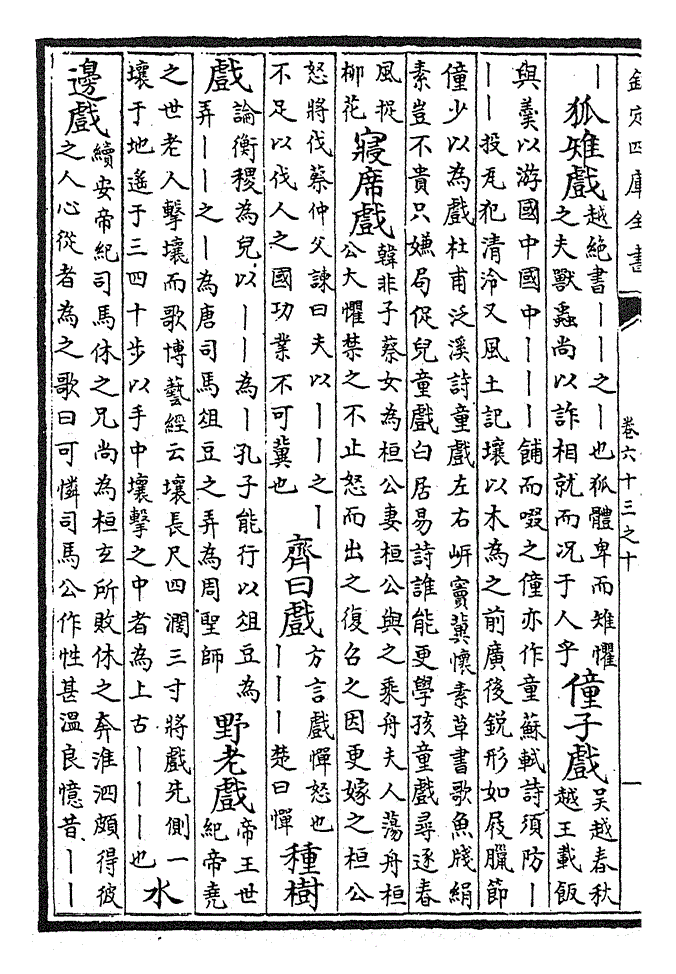 欽定四庫全書
卷六十三之十
｜狐雉戲越絶書｜｜之｜也狐體卑而雉懼
之夫獸蟲尚以詐相就而况于人乎僮子戲吳越春秋
越王載飯
與羮以游國中國中｜｜｜餔而啜之僮亦作童蘇軾詩須防｜
｜｜投瓦犯清泠又風土記壤以木為之前廣後銳形如屐臘節
僮少以為戲杜甫泛溪詩童戲左右岍竇冀懷素草書歌魚牋絹
素豈不貴只嫌局促兒童戲白居易詩誰能更學孩童戲尋逐春
風捉
柳花
寢席戲韓非子蔡女為桓公妻桓公與之乘舟夫人蕩舟桓
公大懼禁之不止怒而出之復召之因更嫁之桓公
怒將伐蔡仲父諫曰夫以｜｜之｜
不足以伐人之國功業不可冀也
齊曰戲方言戲憚怒也
｜｜｜楚曰憚
種樹
戲論衡稷為兒以｜｜為｜孔子能行以俎豆為
弄｜｜之｜為唐司馬俎豆之弄為周聖師
野老戲帝王世
紀帝堯
之世老人擊壤而歌博藝經云壤長尺四濶三寸將戲先側一
壤于地遙于三四十步以手中壤擊之中者為上古｜｜｜也
水
邊戲續安帝紀司馬休之兄尚為桓玄所敗休之奔淮泗頗得彼
之人心從者為之歌曰可憐司馬公作性甚溫良憶昔｜｜